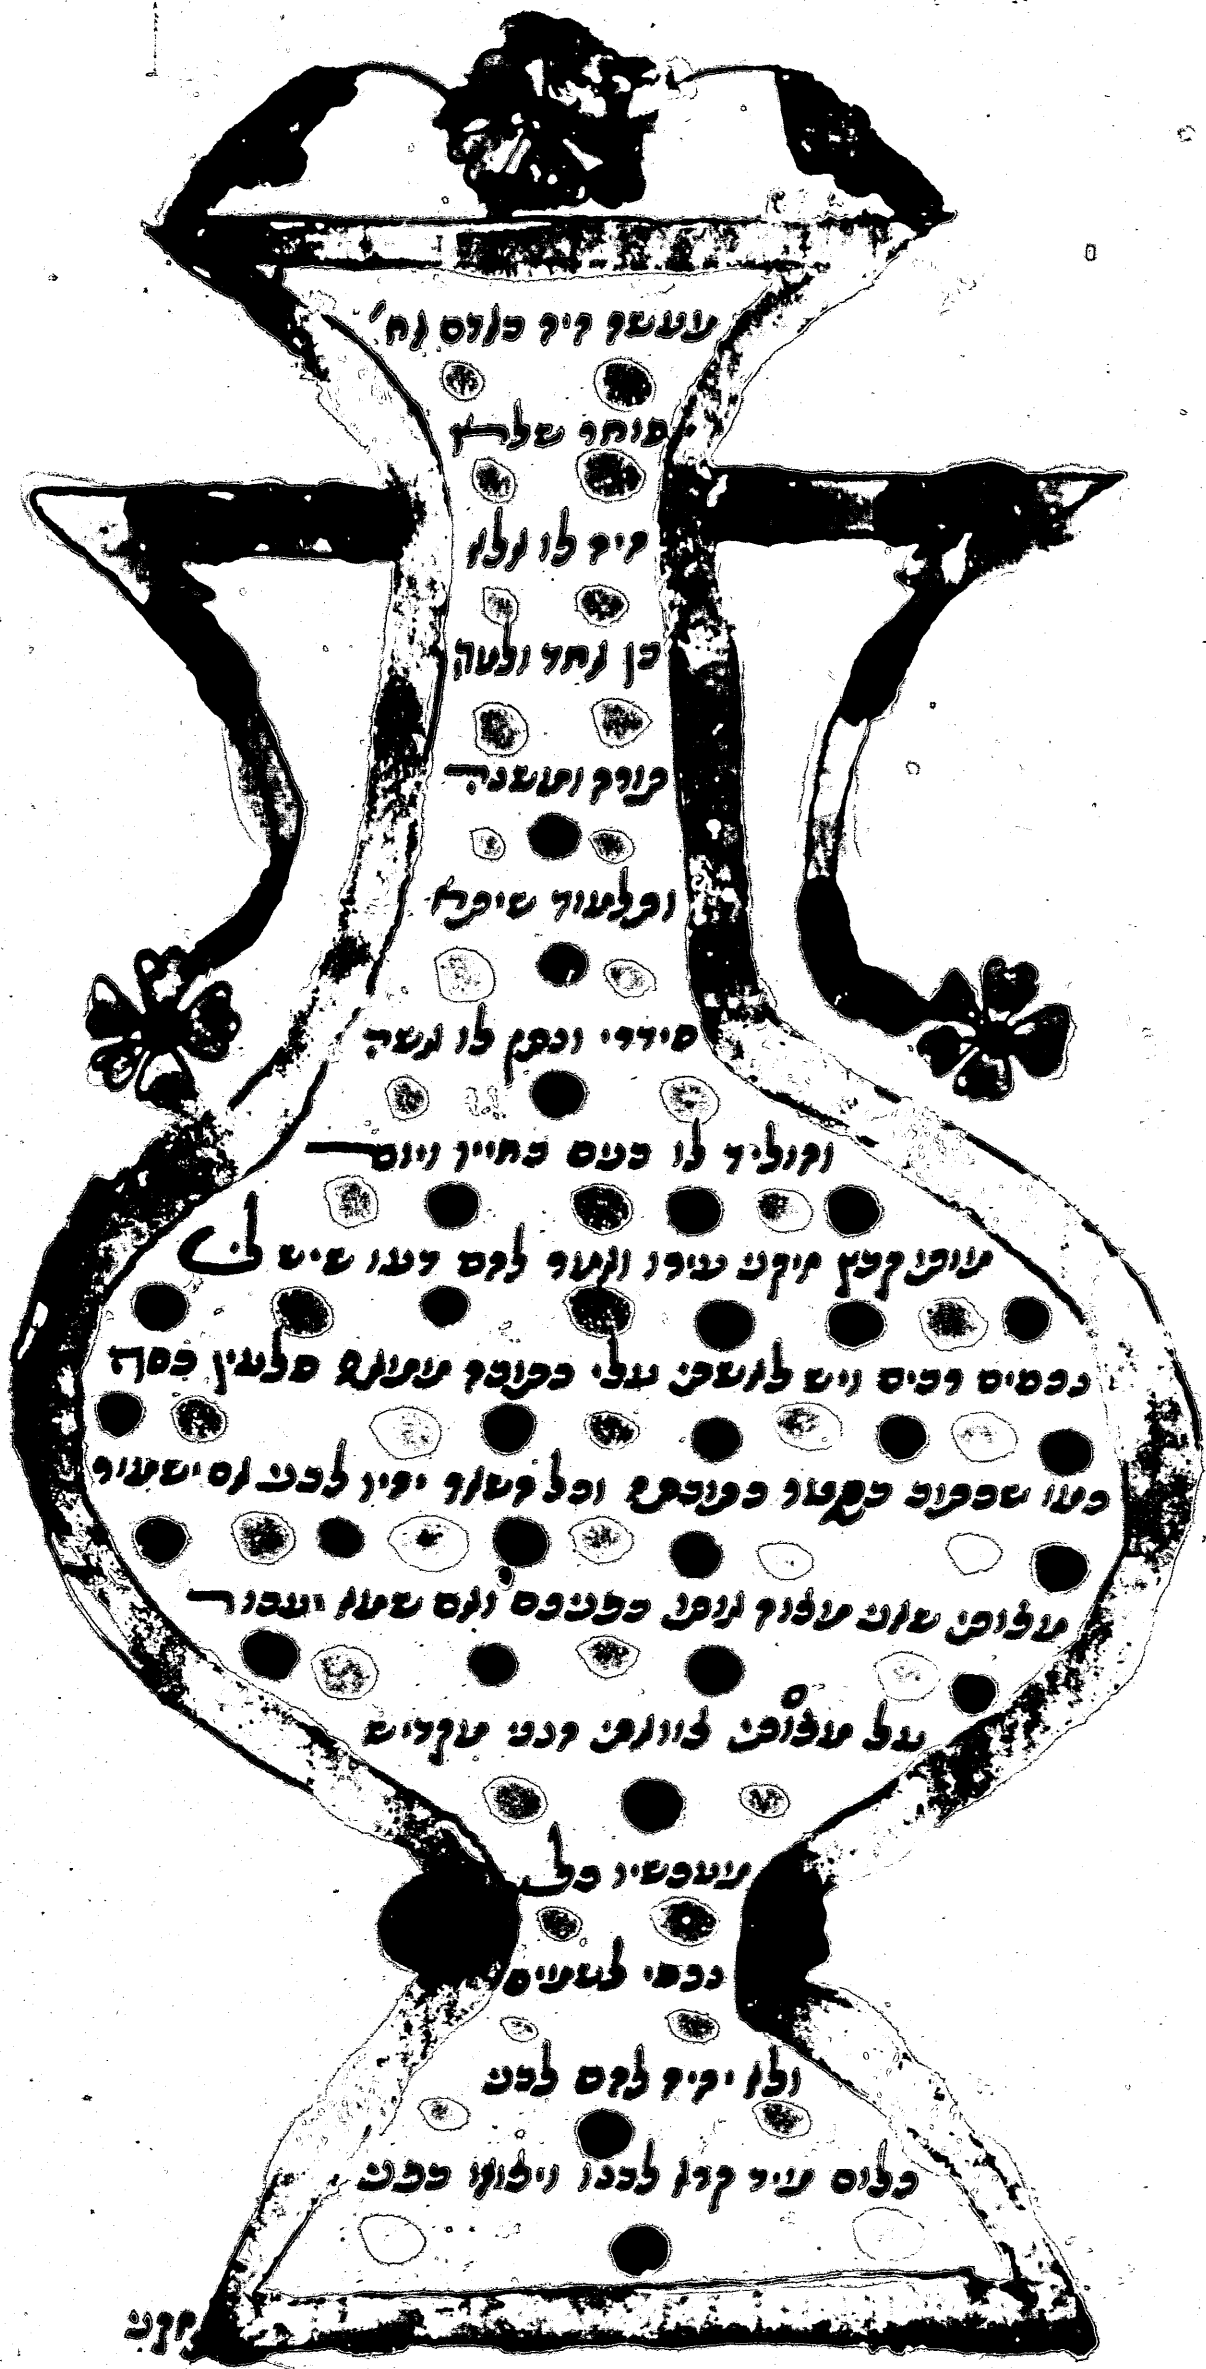 מעשה היה באדם אח'
סוחר שלא
היה לו אלא
בן אחד
תורה ומשנה
ותלמוד שיתא
סידרי ונתן לו אשה
והוליד לו בנים בחייו ויום
מותו קרא זיקני עירו ואמר להם דעו שיש לי
נכסים רבים ויש לאשתי עלי סלעין
כמו שכתוב בשטר כתובתה וכל השאר יהיו לבני אם ישמור
מצותי שאני מצוה אותו בפניכם ואם שמא יעבור
על מצותי צוואתי הנני מקדיש
מעכשיו כל
נכסי לשמים
ולא יהיה להם לבני
כלום מיד קרא לבנו ויצוהו בפני
זקני